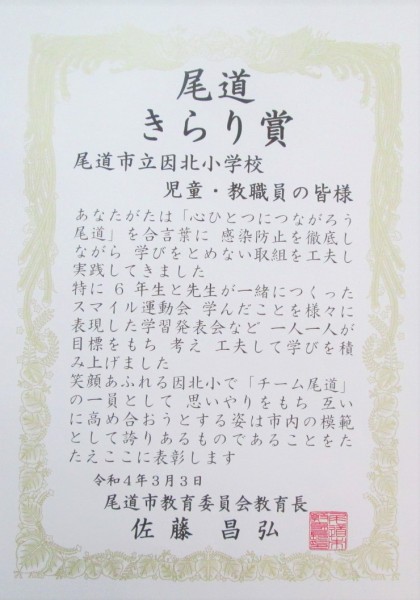 尾道
きらり賞
尾道市立因北小学校
児童・教職員の皆様
あなたがたは「心ひとつにつながろう
尾道」を合言葉に 感染防止を徹底し
ながら 学びをとめない取組を工夫し
実践してきました
特に 6 年生と先生が一緒につくった
スマイル運動会 学んだことを様々に
表現した学習発表会など 一人一人が
目標をもち 考え 工夫して学びを積
み上げました
笑顔あふれる因北小で「チーム尾道」
の一員として 思いやりをもち 互い
に高め合おうとする姿は市内の模範
として誇りあるものであることをた
たえここに表彰します
令和4年3月3日
尾道市教育委員会教育長
佐藤 昌弘